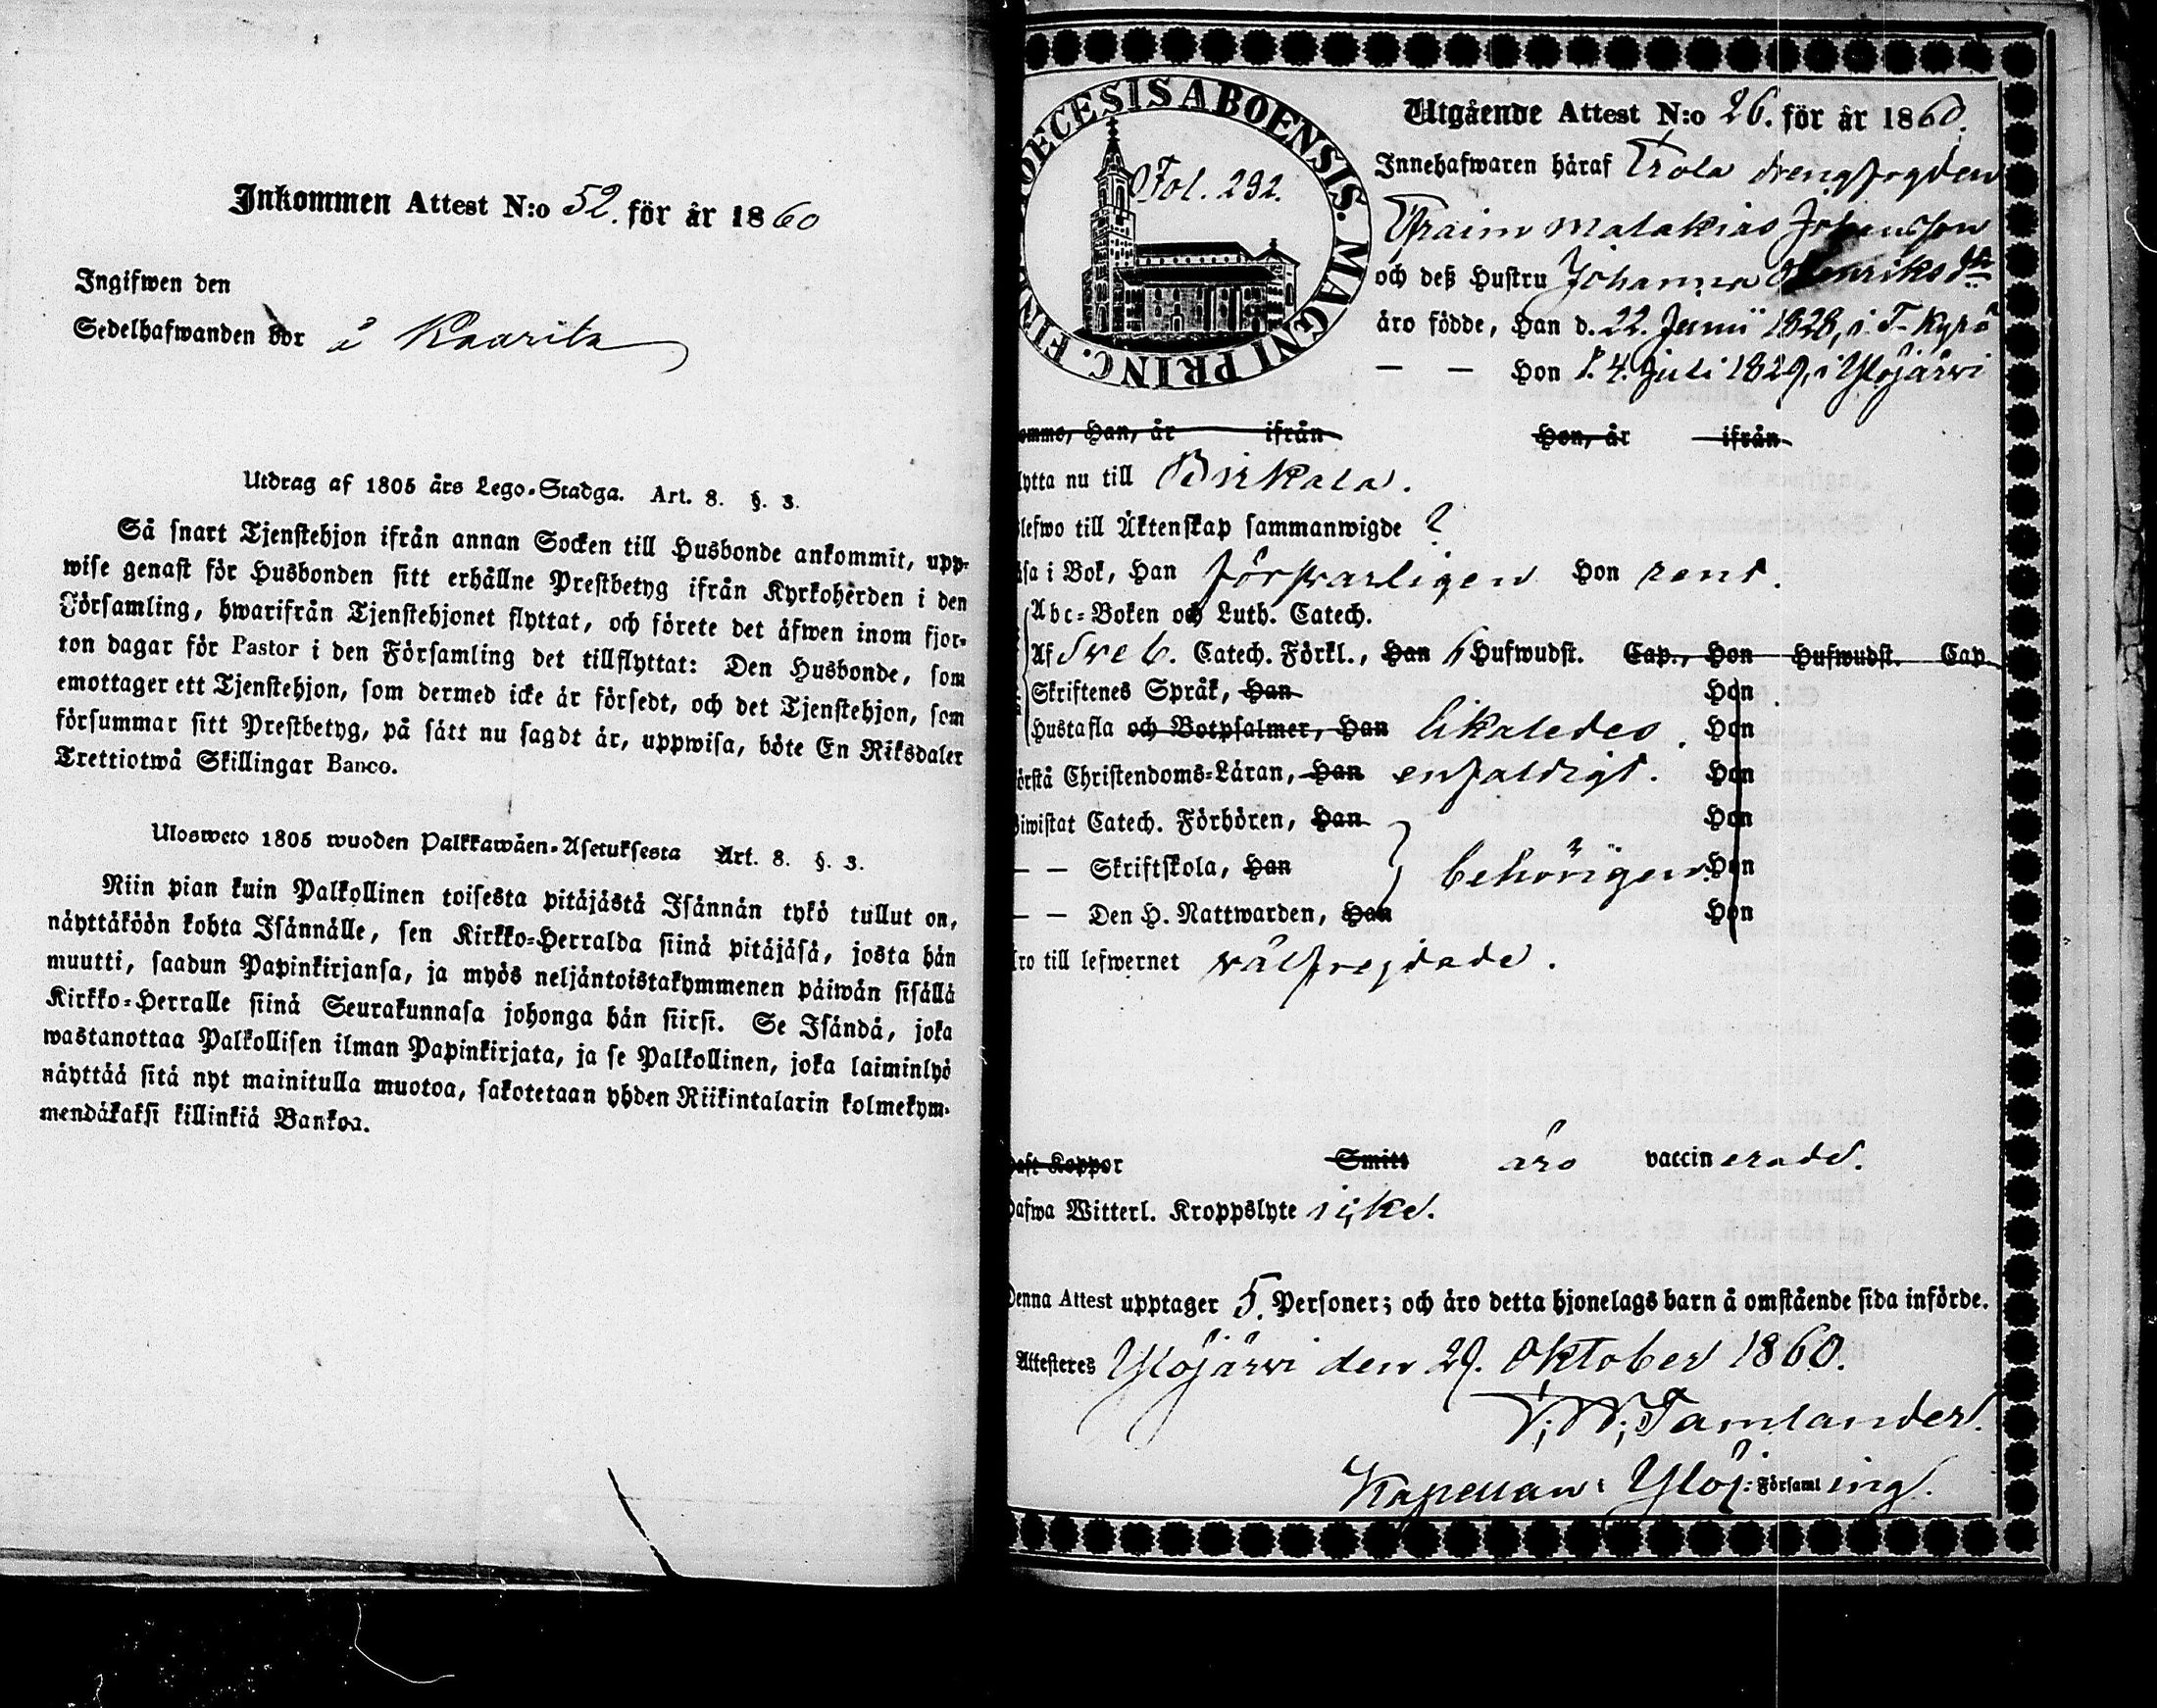 Inkommen Attest N:o 52. för år 1860
Ingifwen den
Sedelhafwanden bor å Kaarila
Utdrag af 1805 års Lego-Stadga. Art. 8. §. 3.
Så snart Tjenstehjon ifrån annan Socken till Husbonde ankommit, upp-
wise genast för Husbonden sitt erhållne Prestbetyg ifrån Kyrkoherden i den
Församling, hwarifrån Tjenstehjonet flyttat, och förete det äfwen inom fjor-
ton dagar för Pastor i den Församling det tillflyttat: Den Husbonde, som
emottager ett Tjenstehjon, som dermed icke är försedt, och det Tjenstehjon, som
försummar sitt Prestbetyg, på sätt nu sagdt är, uppwisa, böte En Riksdaler
Trettiotwå Skillingar Banco.
Ulosweto 1805 wuoden Palkkawäen-Asetuksesta Art. 8. §. 3.
Niin pian kuin Palkollinen toisesta pitäjästä Isännän tykö tullut on,
näyttäköön kohta Isännälle, sen Kirkko-Herralda siinä pitäjäsä, josta hän
muutti, saadun Papinkirjansa, ja myös neljäntoistakymmenen päiwän sisällä
Kirkko-Herralle siinä Seurakunnasa johonga hän siirsi. Se Isändä, joka
wastanottaa Palkollisen ilman Papinkirjata, ja se Palkollinen, joka laiminlyö
näyttää sitä nyt mainitulla muotoa, sakotetaan yhden Riikintalarin kolmekym-
mendäkaksi killinkiä Bankoa.
DECESIS ABOENSIS. MAGNI PRINC. FIN
Fol. 292.
Utgående Attest N:o 26. för år 1860.
Innehafwaren häraf Trola drengfogden
Efraim Malakias Johansson
och deß Hustru Johanna Henriksdr
äro födde, Han d. 22. Junii 1828, i T-Kyrö
— — Hon d. 4. Juli 1829, i Ylöjärwi
ommo, Han, år ifrån Hon, år ifrån
lytta nu till Birkala.
lefwo till Äktenskap sammanwigde ?
äsa i Bok, Han försvarligen Hon rent.
Abc-Boken och Luth. Catech.
Af Sveb. Catech. Förkl., Han Hufwudst. Cap., Hon Hufwudst. Cap.
Skriftenes Språk, Han Hon
Hustafla och Botpsalmer, Han likaledes. Hon
örstå Christendoms-Läran, Han enfaldigt. Hon
Biwistat Catech. Förhören, Han Hon
— — Skriftskola, Han behörigen. Hon
— — Den H. Nattwarden, Han Hon
ro till lefwernet välfrejdade.
haft Koppor Smitt äro vaccinerade.
Hafwa Witterl. Kroppslyte icke.
Denna Attest upptager 5. Personer; och äro detta hjonelags barn å omstående sida införde.
Attesteres Ylöjärwi den 29. Oktober 1860.
Tamlander.
Kapellan i Ylöj: Församling.